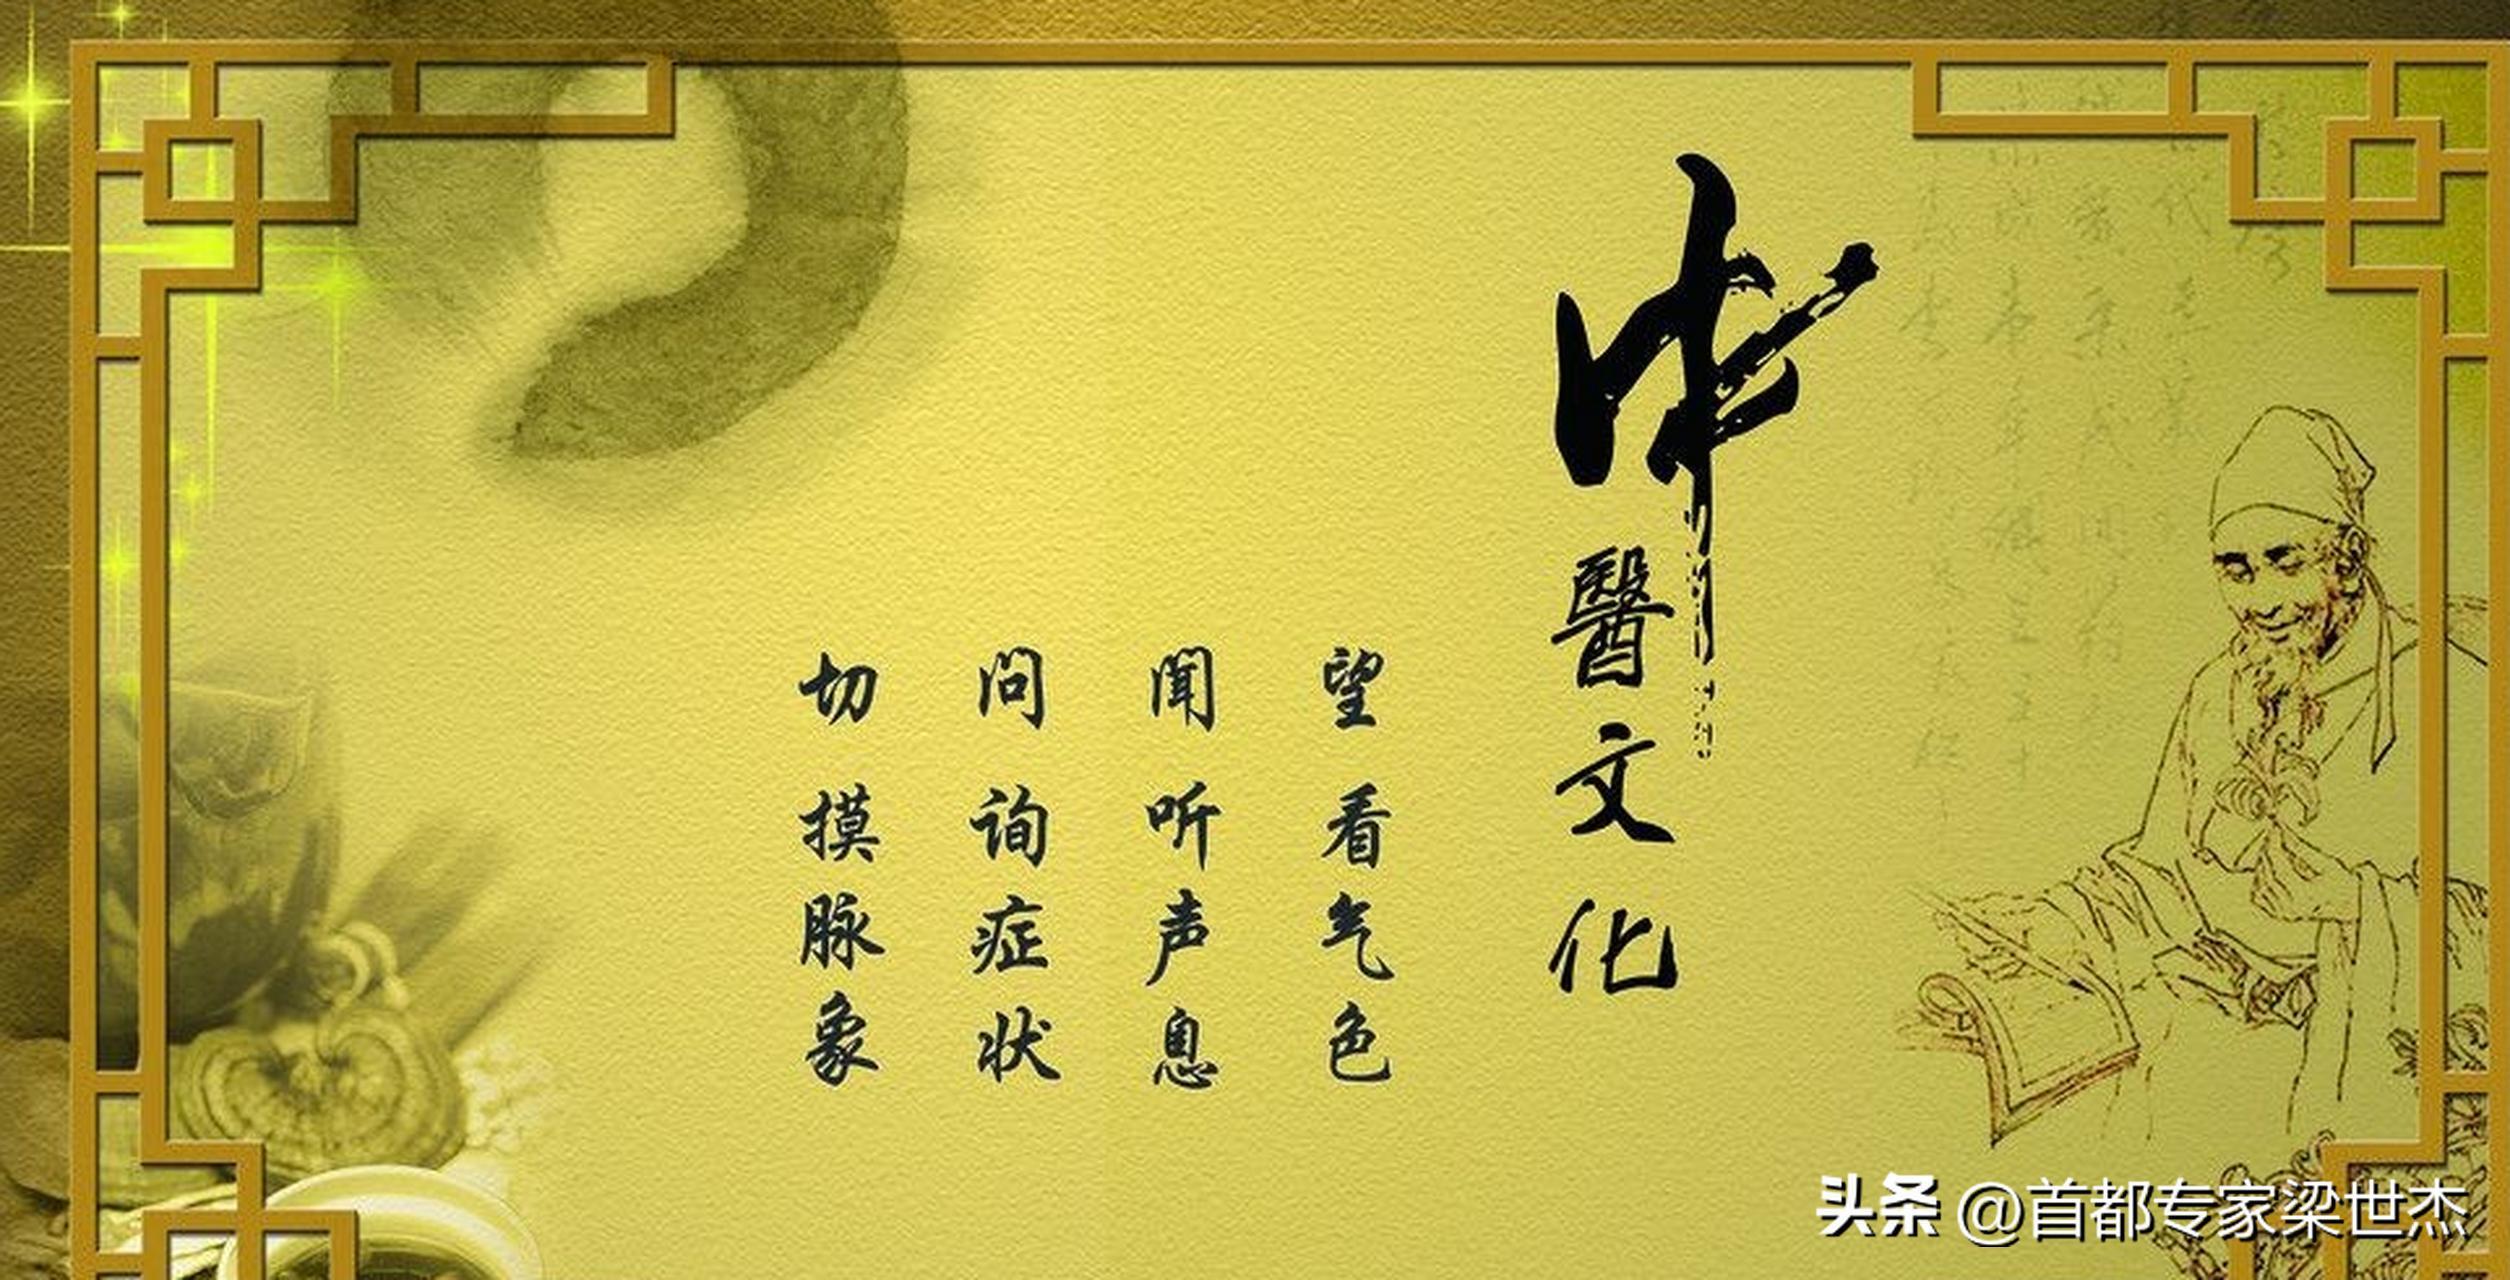 中醫文化
望 看气色
聞 听声息
问 询症状
切 摸脉象
头条 @首都专家梁世杰